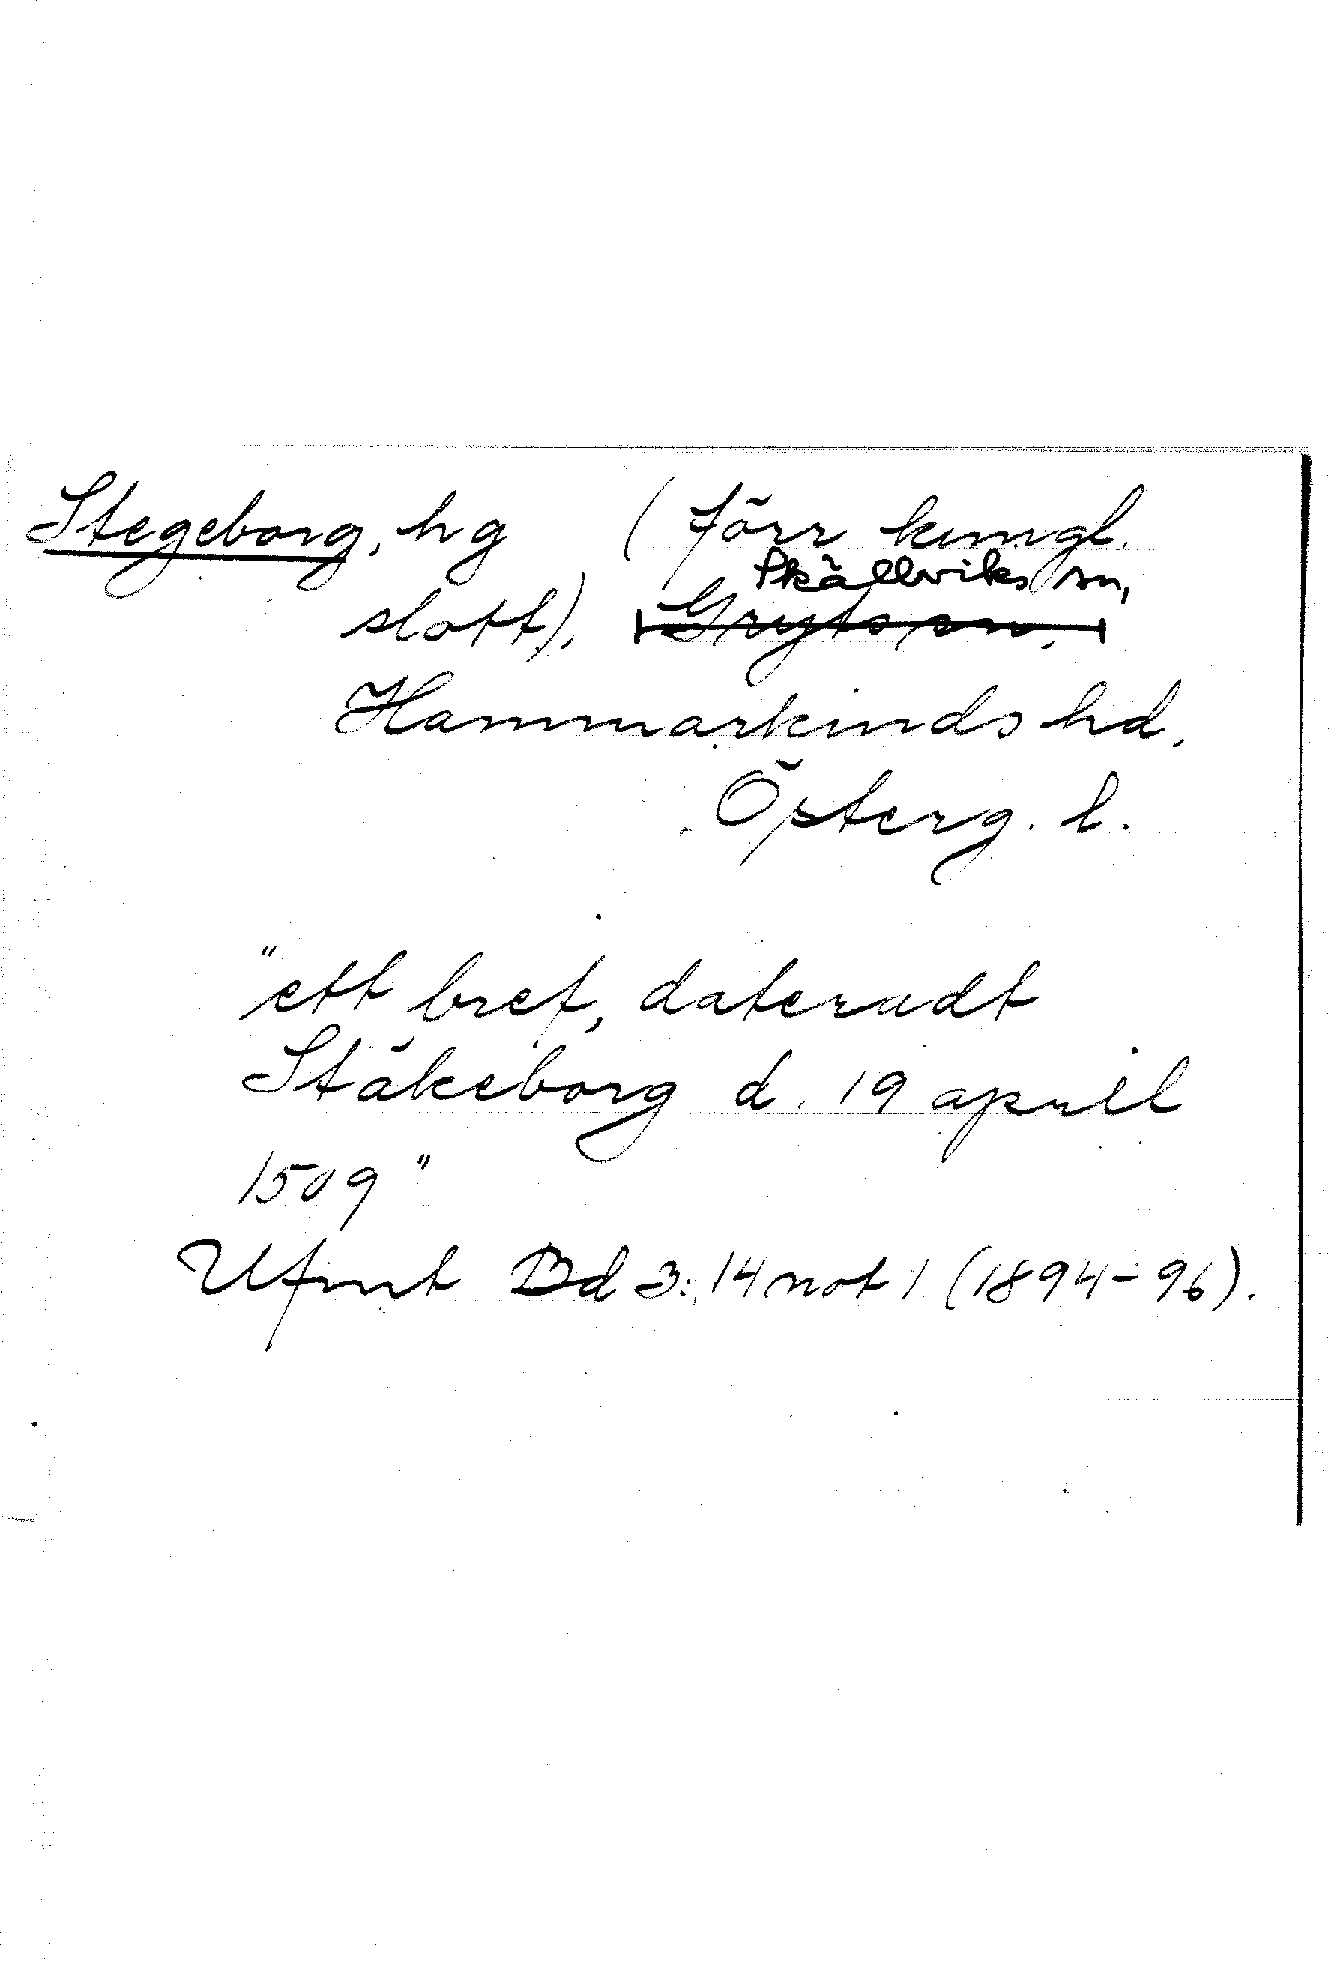 Stegeborg, hg (förr kungl.
Skällviks sn,
slott), Gryts sn,
Hammarkinds hd,
Österg. l.
"ett bref, dateradt
Stäkeborg d. 19 april
1509"
Ufmt Bd 3:14 not 1 (1894-96).